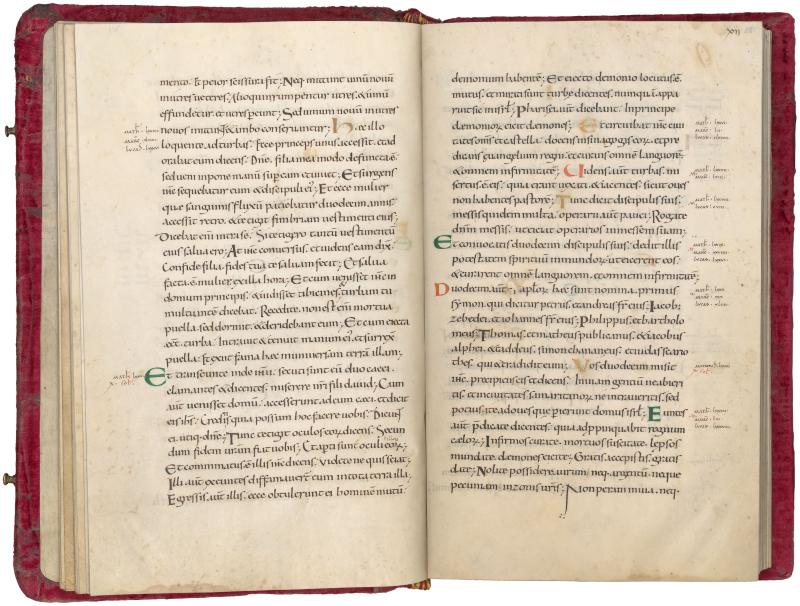 mento. & peior scissura fit; Neq; mittunt uinū nouū
in utres ueteres; Alioquin rumpentur utres, & uinū
effunditur, et utres pereunt; Sed uinum nouū in utres
nouos mittunt, & ambo conseruantur; Haec illo
loquente ad turbas. Ecce princeps unus accessit, et ad
orabat eum dicens; Dn̄e, filia mea modo defuncta ē.
sed ueni inpone manū sup eam et uiuet; Et surgens
ih̄c sequebatur eum & discipuli eī; Et ecce mulier
quae sanguinis fluxū patiebatur duodecim annis.
accessit retro, & tetigit fimbriam uestimenti eius;
Dicebat enī intra se; Si tetigero tantū uestimentū
eius salua ero; At ih̄c conuersus, et uidens eam dix̄.
Confide filia, fides tua te saluam fecit; Et salua
facta ē mulier ex illa hora; Et cum uenisset ih̄c in
domum principis, & uidisset tibicines, & turbam tu
multuantē dicebat; Recedite, non est enī mortua
puella. sed dormit; & deridebant eum; Et cum eiecta
eēt turba. Intrauit & tenuit manum eī, et surrexit
puella; Et exiit fama haec in uniuersam terrā illam;
Et transeunte inde ih̄u, secuti sunt eū duo caeci.
clamantes & dicentes, miserere nr̄i fili dauid; Cum
aūt uenisset domū, accesserunt ad eum caeci. et dicit
eis ih̄s; Creditis quia possum hoc facere uobis; Dicunt
ei utiq; dn̄e; Tunc tetigit oculos eorū dicens; Secun
dum fidem uram fiat uobis; Et apti sunt oculi eorū;
Et comminatus ē illis ih̄c dicens; Videte ne quis sciat;
Illi aūt exeuntes diffamauert eum in tota terra illa;
Egressis aūt illis, ecce obtulerunt ei hominē mutū
xvii
demonium habentē; Et eiecto demonio locutus ē
mutus. et miratae sunt turbe dicentes. numquā appa
ruit sic in isrl̄; Pharisei aūt dicebant. In principe
demoniorū eicit demones; Et circuibat ih̄c ciui
tates om̄s et castella, docens in sinagogis eorū, et pre
dicans euangelium regni, et curans omnē languorē
& omnem infirmitatē; Uidens aūt turbas, mi
sertus ē eis, quia erant uexati & iacentes, sicut oues
non habentes pastorē; Tunc dicit discipulis suis;
messis quidem multa, operarii aūt pauci; Rogate
dn̄m messis, ut eiciat operarios in messem suam;
Et conuocatis duodecim discipulis suis, dedit illis
potestatem spirituū inmundorū, ut eicerent eos.
& curarent omnē languorem, et omnem infirmitatē;
Duodecim aūt aplorū haec sunt nomina. primus
symon qui dicitur petrus, et andreas fr̄ eius; Iacob;
zebedei, et iohannes fr̄ eius; Philippus, et bartholo
meus; Thomas, et matheus publicanus, & iacobus
alphei, et taddeus, simon chananeus, et iudas scario
thes, qui et tradidit eum; Vos duodecim misit
ih̄c, precipiens eis et dicens; In uiam gentiū ne abieri
tis, et in ciuitates samaritanorū ne intraueritis, sed
potius ite ad oues quae perierunt domus isrl̄; Euntes
aūt predicate dicentes, quia adpropinquabit regnum
caelorū; Infirmos curate, mortuos suscitate, leprosos
mundate, demones eicite; Gratis accepistis, gratis
date; Nolite possidere aurum, neq; argentū, neque
pecuniam in zonis uris; Non peram in uia, neq;